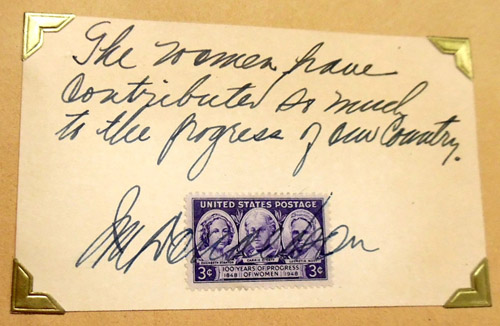 The women have
contributed so much
to the progress of our Country.
UNITED STATES POSTAGE
ELIZABETH STANTON CARRIE C. CATT LUCRETIA MOTT
3¢ 100 YEARS OF PROGRESS 3¢
1848 OF WOMEN 1948